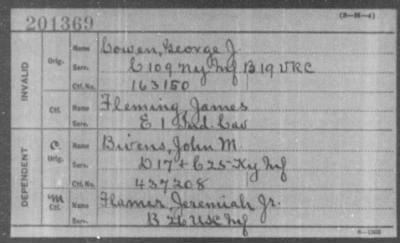 201369
(3-98-4)
INVALID
Orig.
Name Cowen, George J.
Serv. E 109 Ny Inf B 19 VRC
Ctf. No. 163150
Ctf.
Name Fleming, James
Serv. E 1 Ind. Cav
DEPENDENT
C.
Orig.
Name Bivens, John M.
Serv. D 17 & C 25 Ky Inf
Ctf. No. 437208
M
Ctf.
Name Flamer, Jeremiah Jr.
Serv. B 26 USC Inf